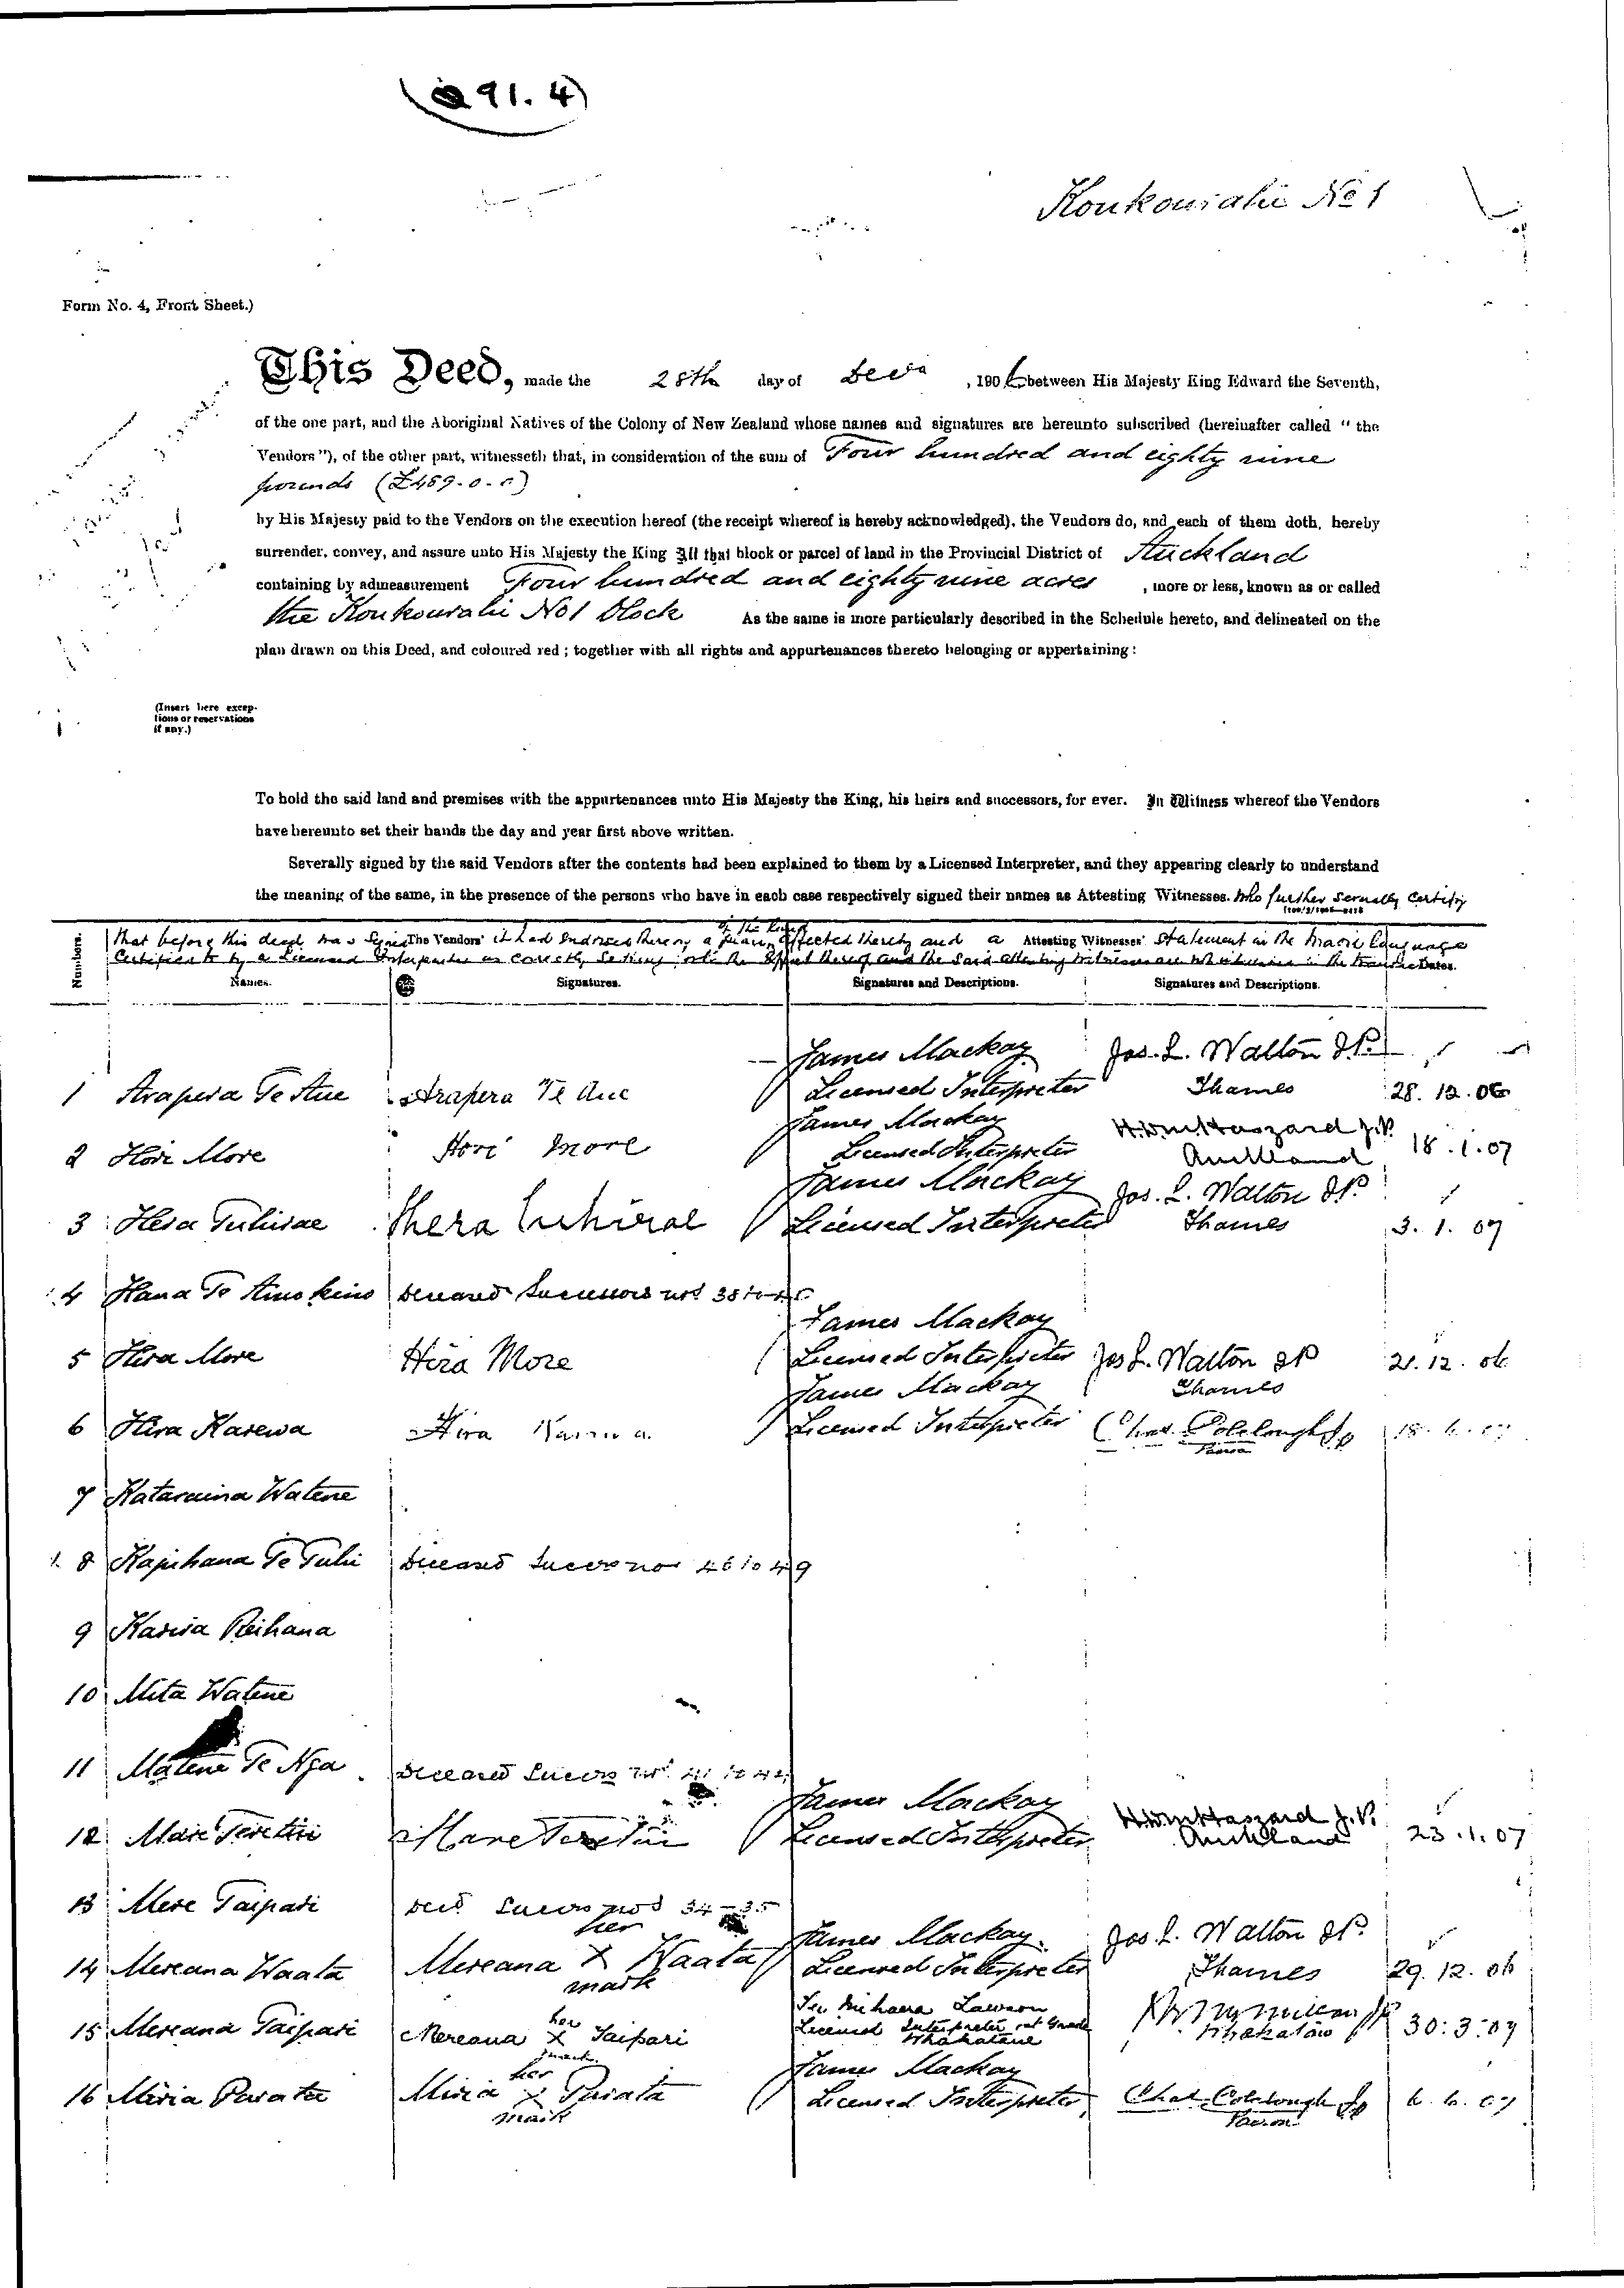 91. 4)
Koukourahi No 1
Form No. 4, Front Sheet.)
This Deed, made the 28th day of Decr , 190 between His Majesty King Edward the Seventh,
of the one part, and the Aboriginal Natives of the Colony of New Zealand whose names and signatures are hereunto subscribed (hereinafter called "the
Vendors"), of the other part, witnesseth that, in consideration of the sum of Four hundred and eighty nine
pounds (£489.0.0)
by His Majesty paid to the Vendors on the execution hereof (the receipt whereof is hereby acknowledged), the Vendors do, and each of them doth, hereby
surrender, convey, and assure unto His Majesty the King All that block or parcel of land in the Provincial District of Auckland
containing by admeasurement Four hundred and eighty nine acres , more or less, known as or called
the Koukourahi No 1 Block As the same is more particularly described in the Schedule hereto, and delineated on the
plan drawn on this Deed, and coloured red; together with all rights and appurtenances thereto belonging or appertaining:
(Insert here excep-
tions or reservations
if any.)
To hold the said land and premises with the appurtenances unto His Majesty the King, his heirs and successors, for ever. In Witness whereof the Vendors
have hereunto set their hands the day and year first above written.
Severally signed by the said Vendors after the contents had been explained to them by a Licensed Interpreter, and they appearing clearly to understand
the meaning of the same, in the presence of the persons who have in each case respectively signed their names as Attesting Witnesses. who further severally certify
that before this deed was signed by the Vendors it had endorsed thereon a plan affected thereby and a Attesting Witnesses' statement in the Maori Language
certified to by a Licensed Interpreter as correctly setting out the effect thereof and the said attesting witnesses are not in the Dates.
Numbers. Names. Signatures. Signatures and Descriptions. Signatures and Descriptions.
James Mackay Jos. L. Walton JP.
1 Arapera Te Aue Arapera Te Aue Licensed Interpreter Thames 28. 12. 06
James Mackay Haszard J.P.
2 Hori More Hori More Licensed Interpreter Auckland 18.1.07
James Mackay Jos. L. Walton JP.
3 Hera Tuhirae Hera Tuhirae Licensed Interpreter Thames 3. 1. 07
4 Hana Te deceased Successors nos 38 to
James Mackay
5 Hira More Hira More Licensed Interpreter Jos L. Walton JP 21. 12. 06
James Mackay Thames
6 Hira Karewa Hira Karewa Licensed Interpreter Chas. Colclough Jp
Paeroa
7 Kataraina Watene
8 Rapihana Te Tuhi deceased Succrs nos 46 to 49
9 Karira Reihana
10 Mita Watene
11 Matene Te Nga deceased Succrs
James Mackay Haszard J.P.
12 Mare Teretiu Mare Teretiu Licensed Interpreter Auckland 23.1.07
13 Mere Taipari decd Succrs nos 34-35
her James Mackay Jos L. Walton JP.
14 Mereana Waata Mereana X Waata Licensed Interpreter Thames 29. 12. 06
mark
her Lawson
15 Mereana Taipari Mereana X Taipari Licensed Interpreter 1st Grade JP 30:3:07
mark Whakatane Whakatane
her James Mackay
16 Miria Parata Miria X Parata Licensed Interpreter Chas. Colclough Jp 6. 6. 07
mark Paeroa